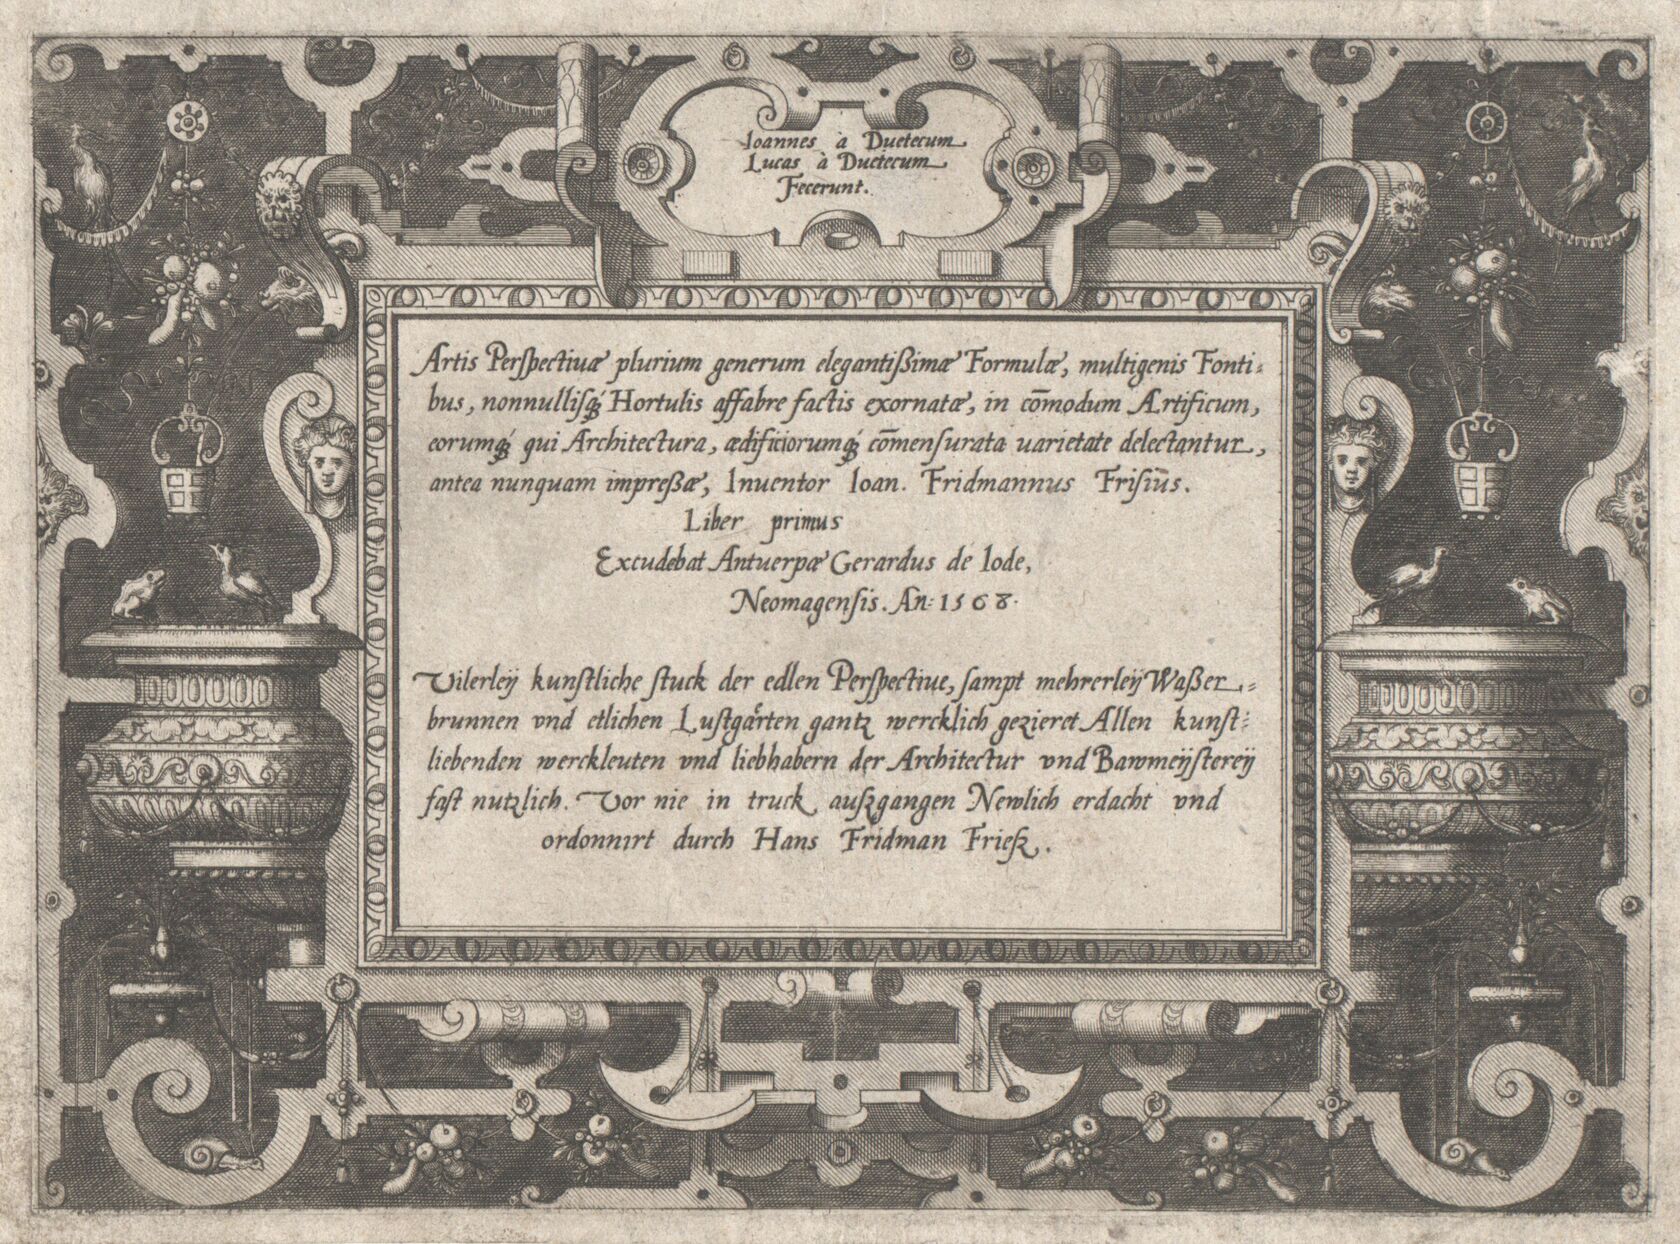 Ioannes à Duetecum
Lucas à Duetecum
Fecerunt.
Artis Perſpectiuæ plurium generum elegantißimæ Formulæ, multigenis Fonti-
bus, nonnulliſq́; Hortulis affabre factis exornatæ, in com̄odum Artificum,
eorumq́; qui Architectura, ædificiorumq́; com̄enſurata uarietate delectantur,
antea nunquam impreßæ, Inuentor Ioan. Fridmannus Friſius.
Liber primus
Excudebat Antuerpæ Gerardus de Iode,
Neomagenſis. An: 1568.
Vilerleÿ kunſtliche ſtuck der edlen Perſpectiue, ſampt mehrerleÿ Waßer-
brunnen vnd etlichen Luſtgårten gantz wercklich gezieret Allen kunſt-
liebenden werckleuten vnd liebhabern der Architectur vnd Bawmeÿſtereÿ
faſt nutzlich. Vor nie in truck außgangen Newlich erdacht vnd
ordonnirt durch Hans Fridman Frieß.